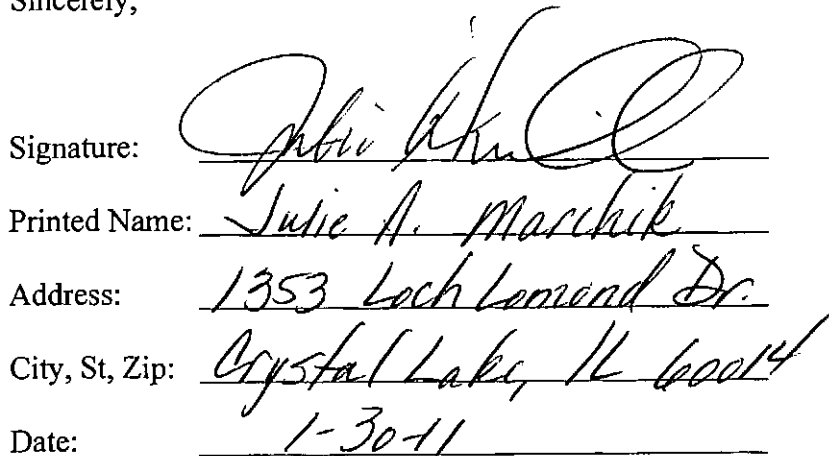 Sincerely,
Signature:
Printed Name: Julie A. Marchik
Address: 1353 Loch Lomond Dr.
City, St, Zip: Crystal Lake, IL 60014
Date: 1-30-11